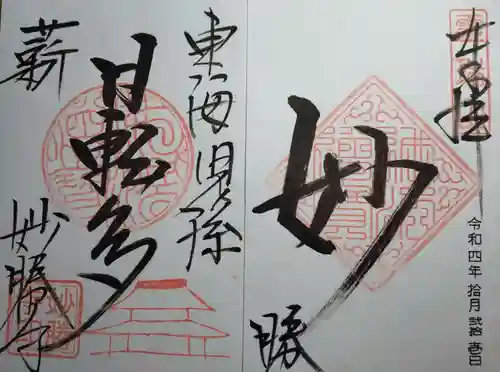 奉拝
妙
勝
令和四年 拾月 弐拾壱日
東海児孫
日転多
薪
妙勝寺